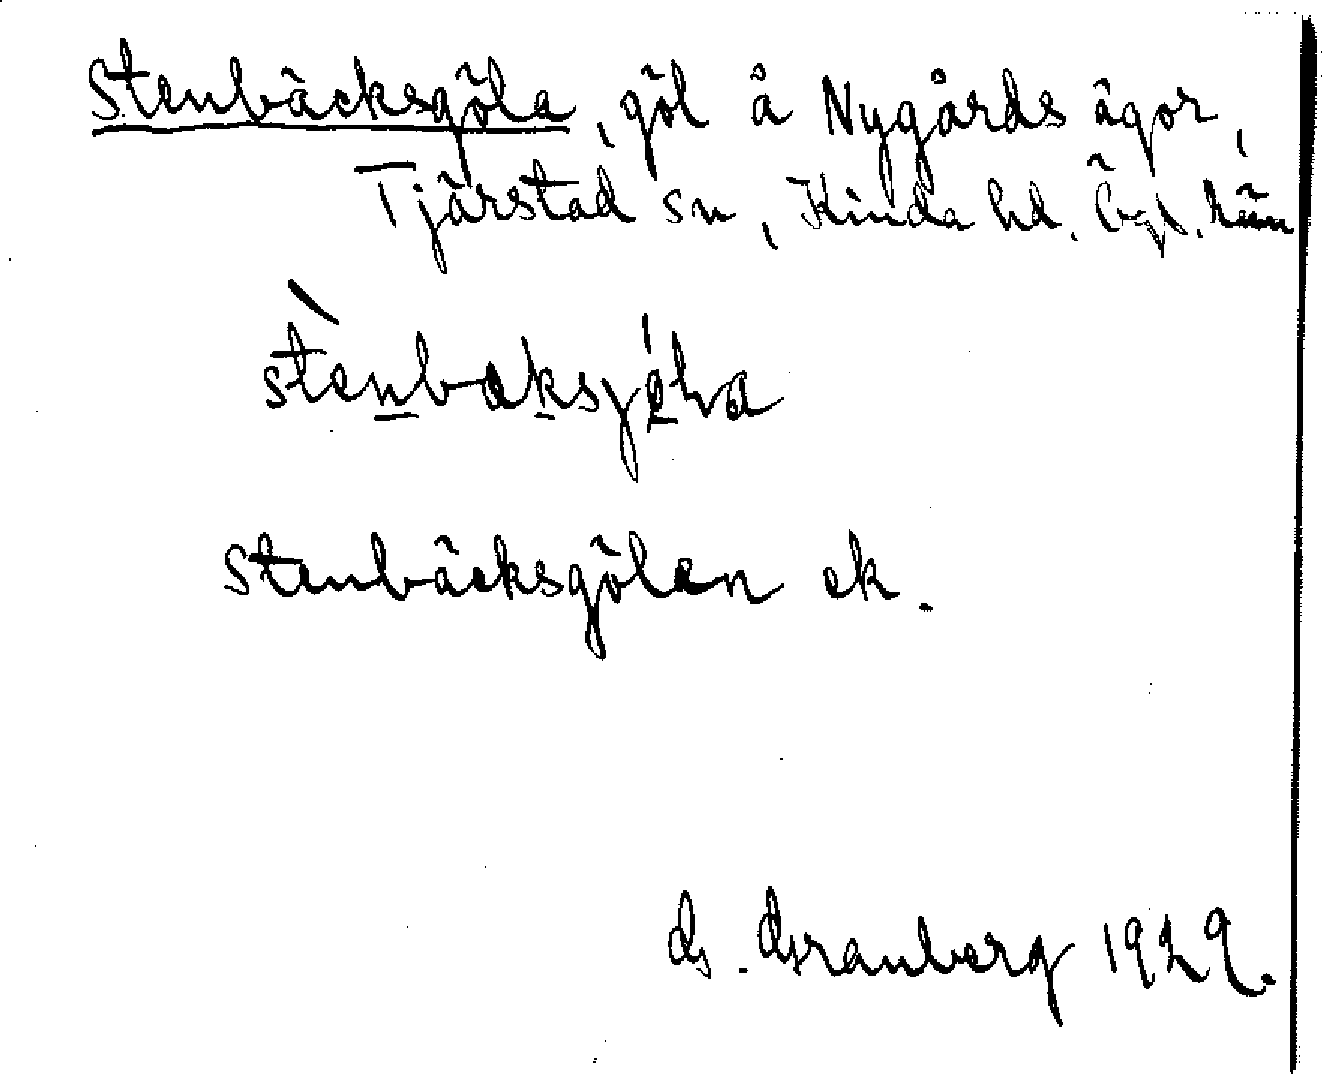 Stenbäcksgöla, göl å Nygårds ägor,
Tjärstad sn, Kinda hd. Ögl. län
stènbaksjǿla
Stenbäcksgölen ek.
G. Granberg 1929.